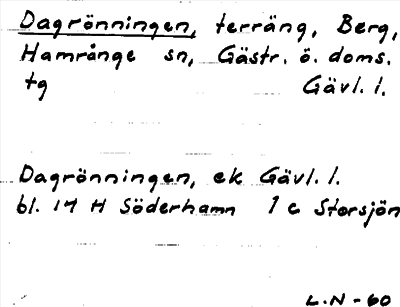 Dagrönningen, terräng, Berg,
Hamrånge sn, Gästr. ö. doms.
tg Gävl. l.
Dagrönningen, ek Gävl. l.
bl. 14 H Söderhamn 1 c Storsjön
L.N - 60